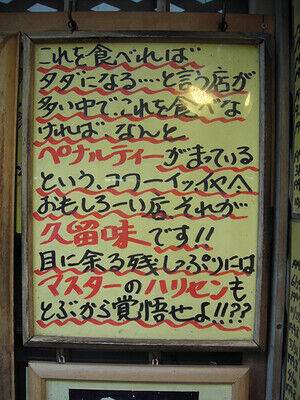 これを食べれれば
タダになる…と言う店が
多い中で、これを食べな
ければ、なんと
ペナルティーがまっている
という、コワーイッ、イヤ
おもしろーい店、それが
久留味です!!
目に余る残しっぷりには
マスターのハリセンも
とぶから覚悟せよ!!??